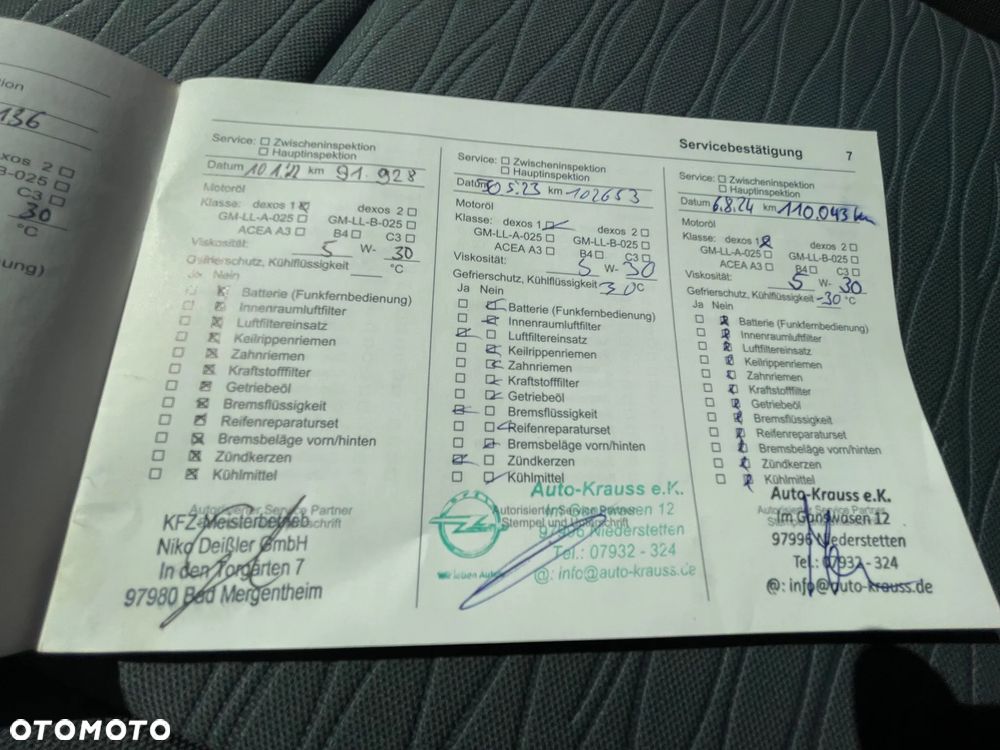 ion
136
xos 2 ☐
-B-025 ☐
C3 ☐
30
°C
ung)
Servicebestätigung 7
Service: ☐ Zwischeninspektion
☐ Hauptinspektion
Datum 10.1.22 km 91.928
Motoröl
Klasse: dexos 1 ☒ dexos 2 ☐
GM-LL-A-025 ☐ GM-LL-B-025 ☐
ACEA A3 ☐ B4 ☐ C3 ☐
Viskosität: 5 W- 30
Gefrierschutz, Kühlflüssigkeit °C
Ja Nein
☐ ☒ Batterie (Funkfernbedienung)
☐ ☒ Innenraumluftfilter
☐ ☒ Luftfiltereinsatz
☐ ☒ Keilrippenriemen
☐ ☒ Zahnriemen
☐ ☒ Kraftstofffilter
☐ ☒ Getriebeöl
☐ ☒ Bremsflüssigkeit
☐ ☒ Reifenreparaturset
☐ ☒ Bremsbeläge vorn/hinten
☐ ☒ Zündkerzen
☐ ☒ Kühlmittel
Autorisierter Service Partner
KFZ-Meisterbetrieb
Niko Deißler GmbH
In den Torgärten 7
97980 Bad Mergentheim
Service: ☐ Zwischeninspektion
☐ Hauptinspektion
Datum 5.23 km 102653
Motoröl
Klasse: dexos 1 ☒ dexos 2 ☐
GM-LL-A-025 ☐ GM-LL-B-025 ☐
ACEA A3 ☐ B4 ☐ C3 ☐
Viskosität: 5 W- 30
Gefrierschutz, Kühlflüssigkeit -30°C
Ja Nein
☐ ☒ Batterie (Funkfernbedienung)
☐ ☒ Innenraumluftfilter
☒ ☐ Luftfiltereinsatz
☐ ☒ Keilrippenriemen
☐ ☒ Zahnriemen
☐ ☒ Kraftstofffilter
☐ ☒ Getriebeöl
☒ ☐ Bremsflüssigkeit
☐ ☒ Reifenreparaturset
☐ ☒ Bremsbeläge vorn/hinten
☒ ☐ Zündkerzen
☐ ☒ Kühlmittel
Auto-Krauss e.K.
Autorisierter Service Partner
Im Gänswasen 12
Stempel und Unterschrift
97996 Niederstetten
Tel.: 07932 - 324
Wir leben Autos.
@: info@auto-krauss.de
Service: ☐ Zwischeninspektion
☐ Hauptinspektion
Datum 6.8.24 km 110.043 km
Motoröl
Klasse: dexos 1 ☒ dexos 2 ☐
GM-LL-A-025 ☐ GM-LL-B-025 ☐
ACEA A3 ☐ B4 ☐ C3 ☐
Viskosität: 5 W- 30
Gefrierschutz, Kühlflüssigkeit -30 °C
Ja Nein
☐ ☒ Batterie (Funkfernbedienung)
☐ ☒ Innenraumluftfilter
☐ ☒ Luftfiltereinsatz
☐ ☒ Keilrippenriemen
☐ ☒ Zahnriemen
☐ ☒ Kraftstofffilter
☐ ☒ Getriebeöl
☐ ☒ Bremsflüssigkeit
☐ ☒ Reifenreparaturset
☐ ☒ Bremsbeläge vorn/hinten
☐ ☒ Zündkerzen
☐ ☒ Kühlmittel
Auto-Krauss e.K.
Autorisierter Service Partner
Im Gänswasen 12
97996 Niederstetten
Tel.: 07932 - 324
@: info@auto-krauss.de
OTOMOTO